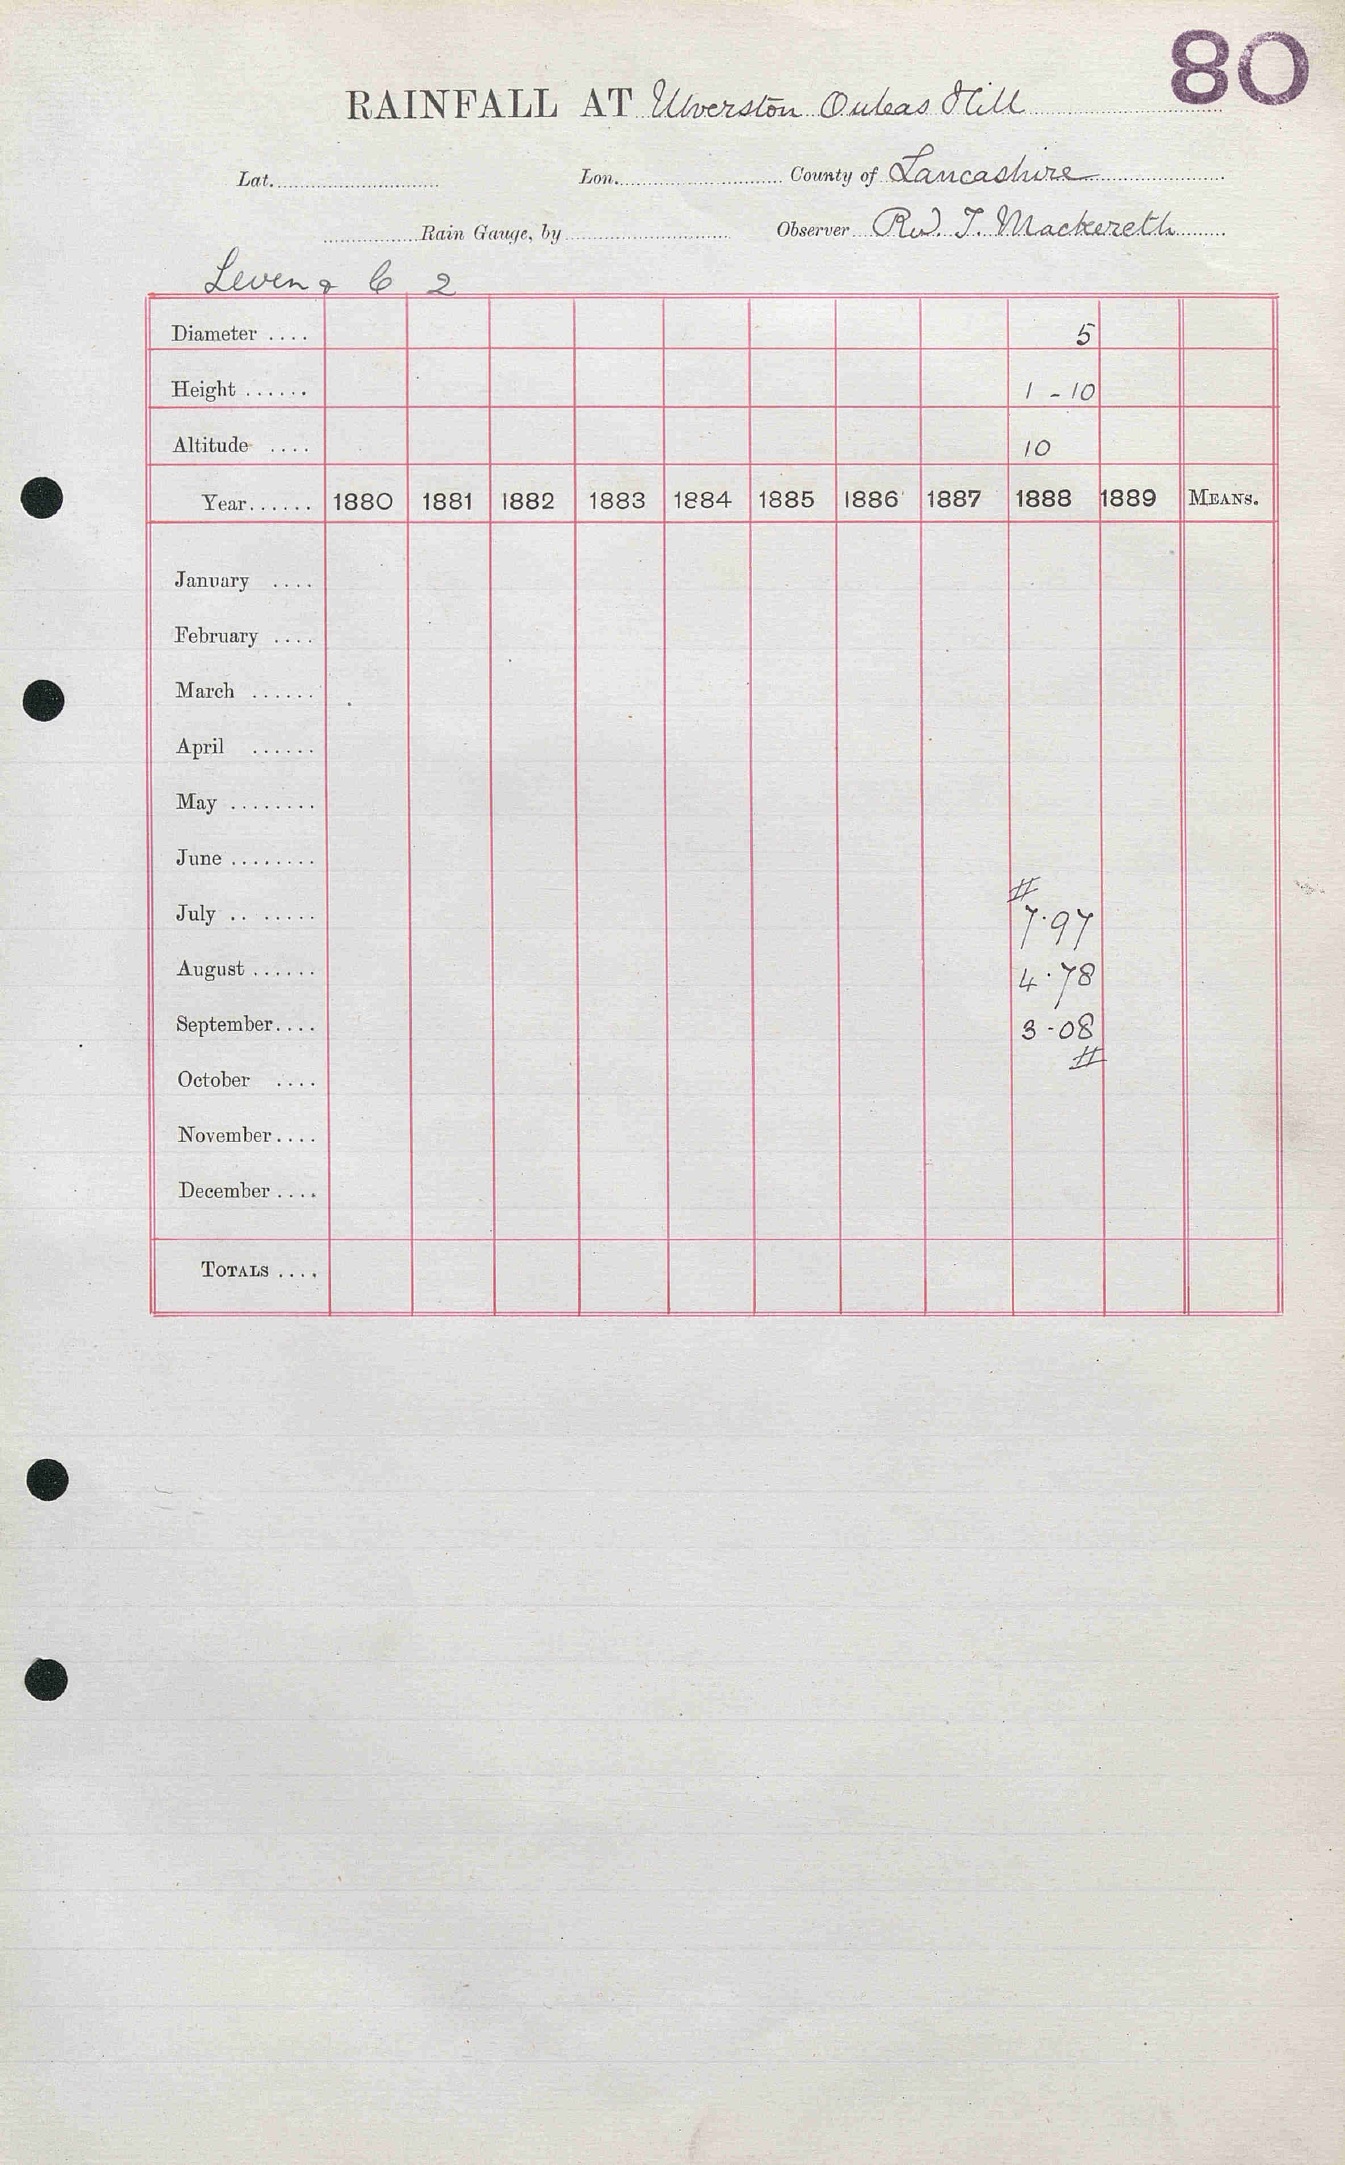 80
RAINFALL AT Ulverston Oubas Hill
Lat. Lon. County of Lancashire
Rain Gauge, by Observer Rev. T. Mackereth
Leven & C 2
Diameter .... 5
Height ...... 1 - 10
Altitude .... 10
Year...... 1880 1881 1882 1883 1884 1885 1886 1887 1888 1889 MEANS.
January ....
February ....
March ......
April ......
May ........
June ........
#
July .. ...... 7.97
August ...... 4.78
September.... 3.08
#
October ....
November....
December ....
TOTALS ....